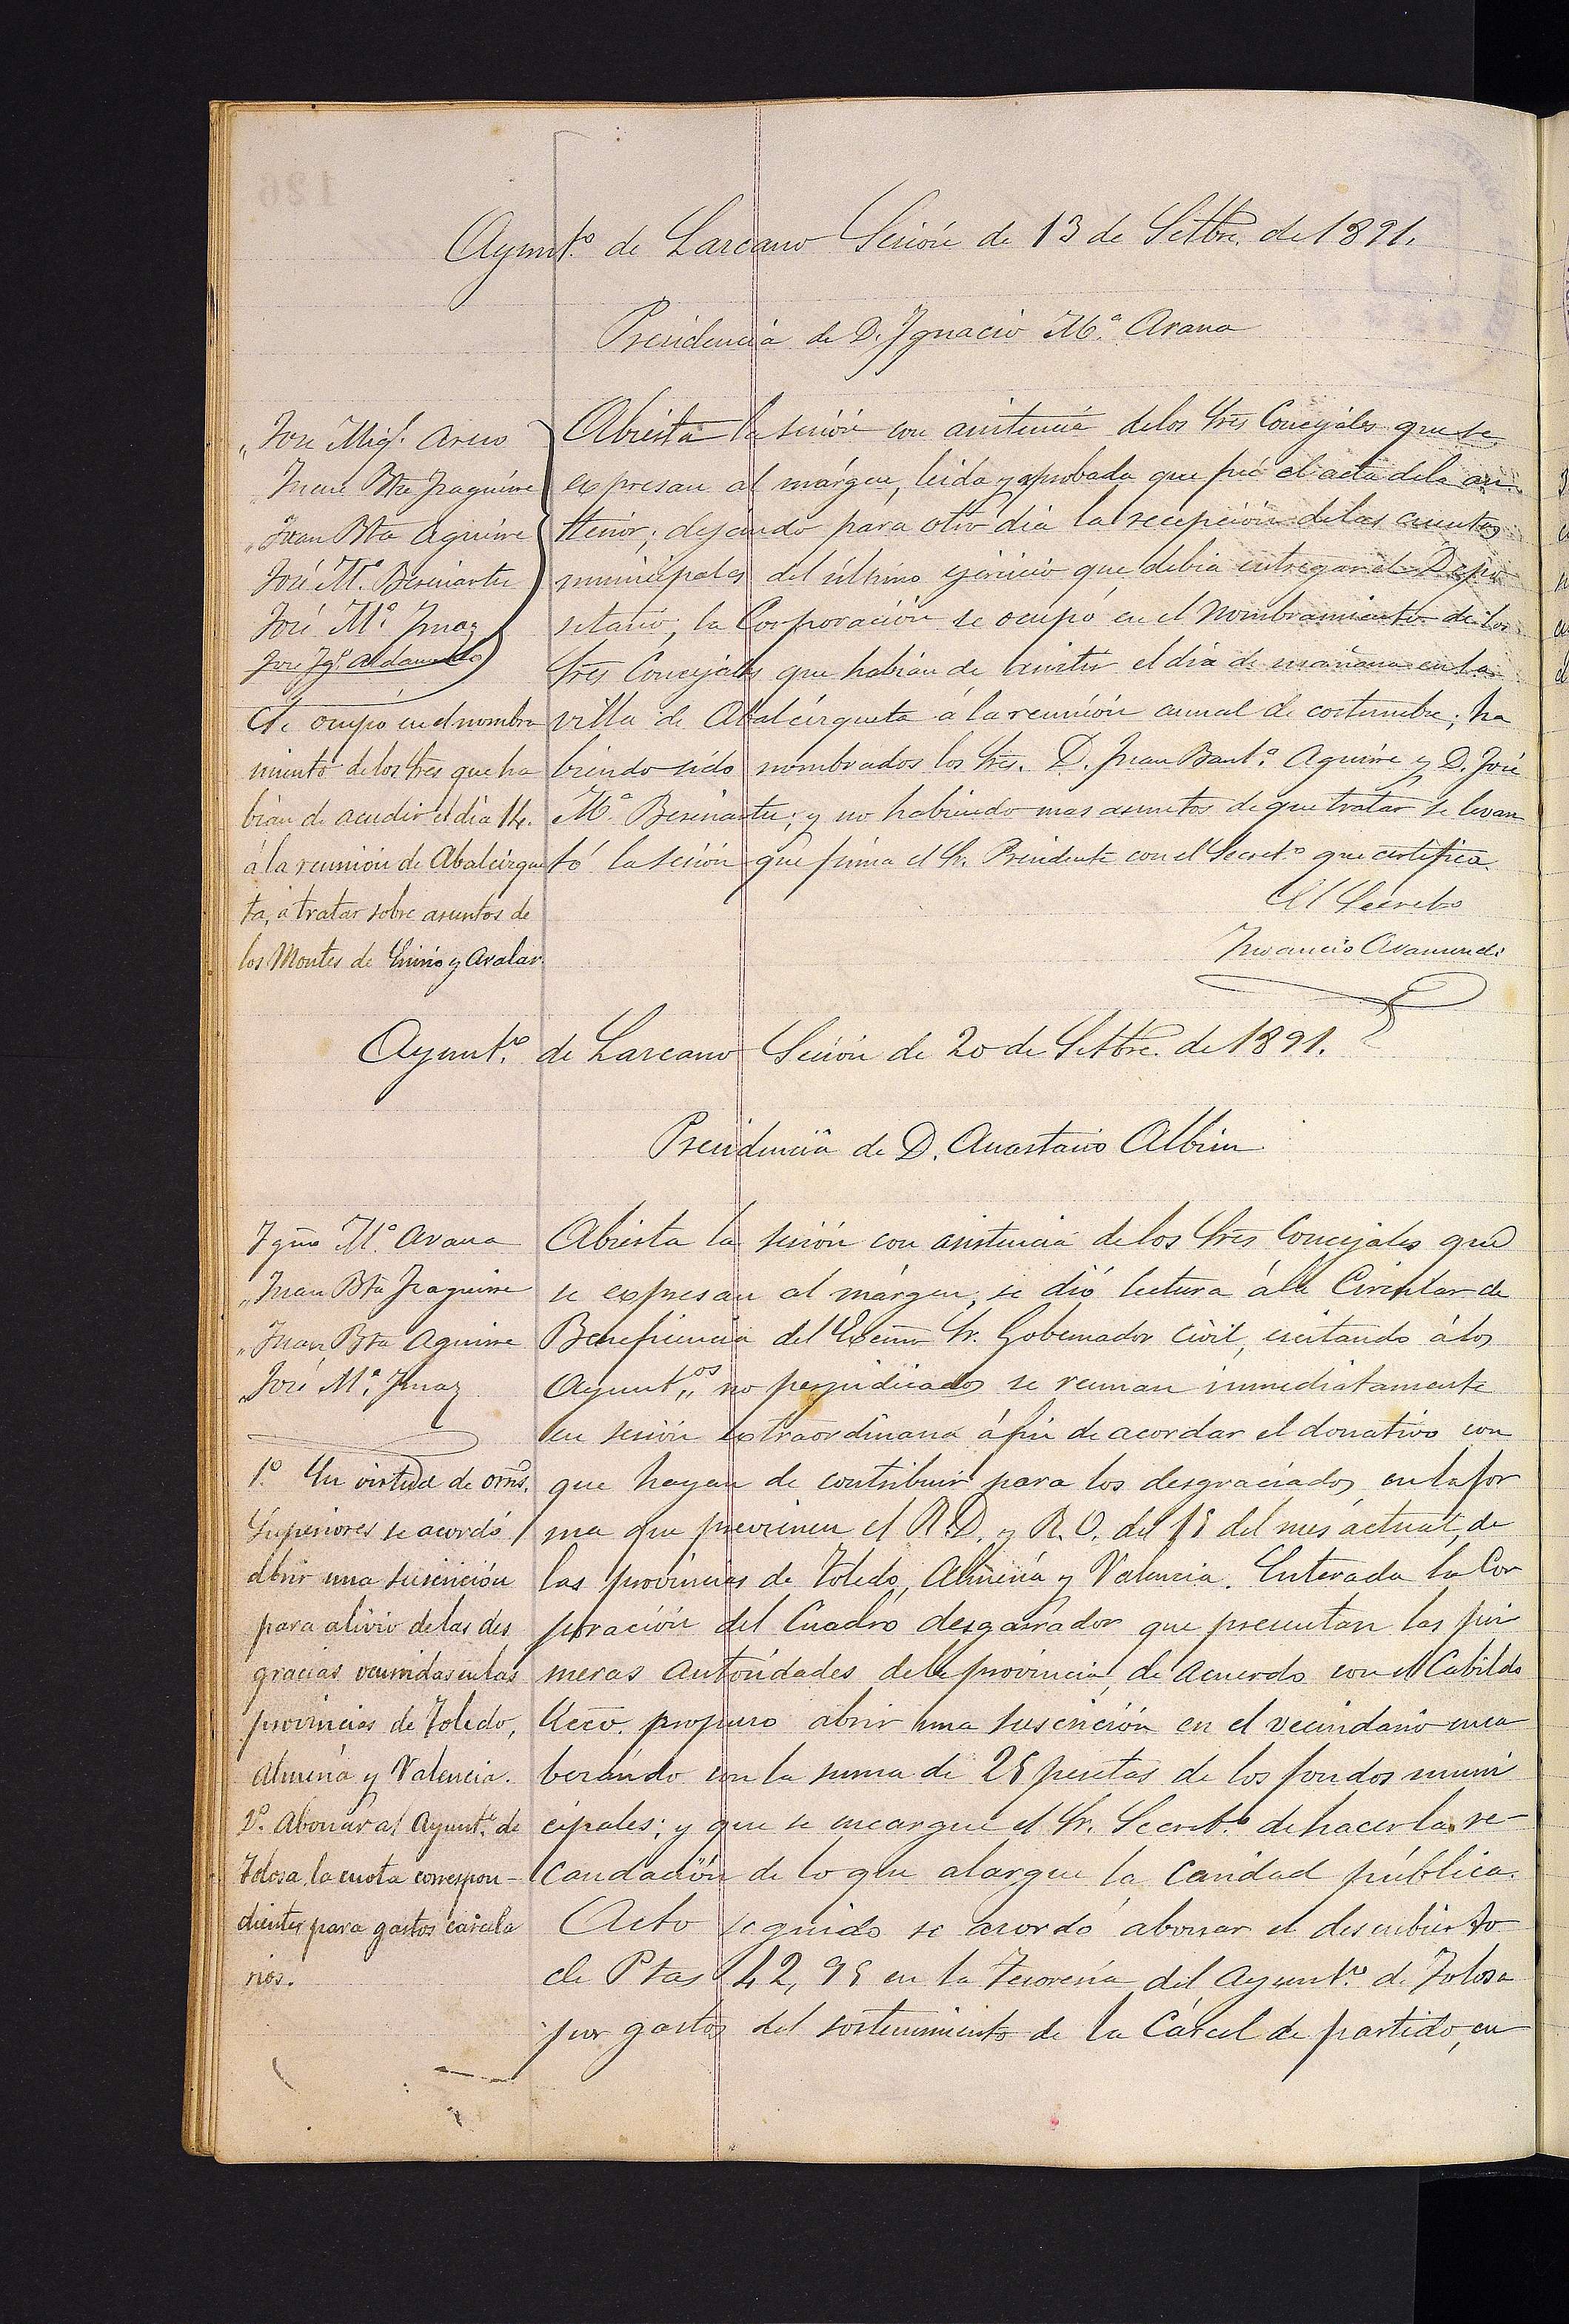 Ayunt.º de Lazcano Sesión de 13 de Setbre. de 1891.
Presidencia de D. Ygnacio M.ª Arana
Jose Mig.l Areso
Juan Bta Yraguirre
Juan Bta Aguirre
José M.ª Beriartu
José M.ª Ymaz
Jose Ygº
Se ocupó en el nombra
miento de los Sres que ha
bian de acudir el dia 14.
á la reunión de Abalcisque
ta, á tratar sobre asuntos de
los Montes de Enirio y Aralar.
Abierta la sesión con asistencia de los Sres Concejales que se
expresan al márgen, leida y aprobada que fué el acta de la an
terior; dejando para otro dia la recepción de las cuentas
municipales del último ejercicio que debia entregar el Depo
sitario, la Corporación se ocupó en el nombramiento de los
Sres Concejales que habian de asistir el dia de mañana en la
villa de Abalcisqueta á la reunión anual de costumbre; ha
biendo sido nombrados los Sres. D. Juan Baut.ª Aguirre y D. José
M.ª Beriartu; y no habiendo mas asuntos de que tratar se levan
tó la sesión que firma el Sr. Presidente con el Secret.º que certifica.
El Secreto
Aramendi
Ayunt.º de Lazcano Sesión de 20 de Setbre. de 1891.
Presidencia de D. Anastasio Albisu
Ygno M.ª Arana
Juan Bta Yraguirre
Juan Bta Aguirre
José M.ª Ymaz
1.º En virtud de orns.
Superiores se acordó
abrir una suscrición
para alivio de las des
gracias ocurridas en las
provincias de Toledo,
Almería y Valencia.
2.º Abonar al Ayunt.º de
Tolosa, la cuota correspon-
dientes para gastos carcela
rios.
Abierta la sesión con asistencia de los Sres Concejales que
se expresan al márgen, se dió lectura á la Circular de
Beneficencia del Excmo Sr. Gobernador Civil, escitando á los
Ayunt.os no perjudicados se reunan inmediatamente
en sesión extraordinaria á fin de acordar el donativo con
que hayan de contribuir para los desgraciados en la for
ma que previenen el R.D. y R.O. del 15 del mes actual, de
las provincias de Toledo, Almería y Valencia. Enterada la Cor
poración del Cuadro desgarrador que presentan las pri
meras Autoridades de la provincia, de acuerdo con el Cabildo
Ecco. propuso abrir una suscrición en el vecindario enca
bezando con la suma de 25 pesetas de los fondos muni
cipales; y que se encargue el Sr. Secret.º de hacer la re-
caudación de lo que alargue la caridad pública.
Acto seguido se acordó abonar el descubierto
de Ptas 42,95 en la Tesorería del Ayunt.º de Tolosa
por gastos del sostenimiento de la Cárcel de partido, en